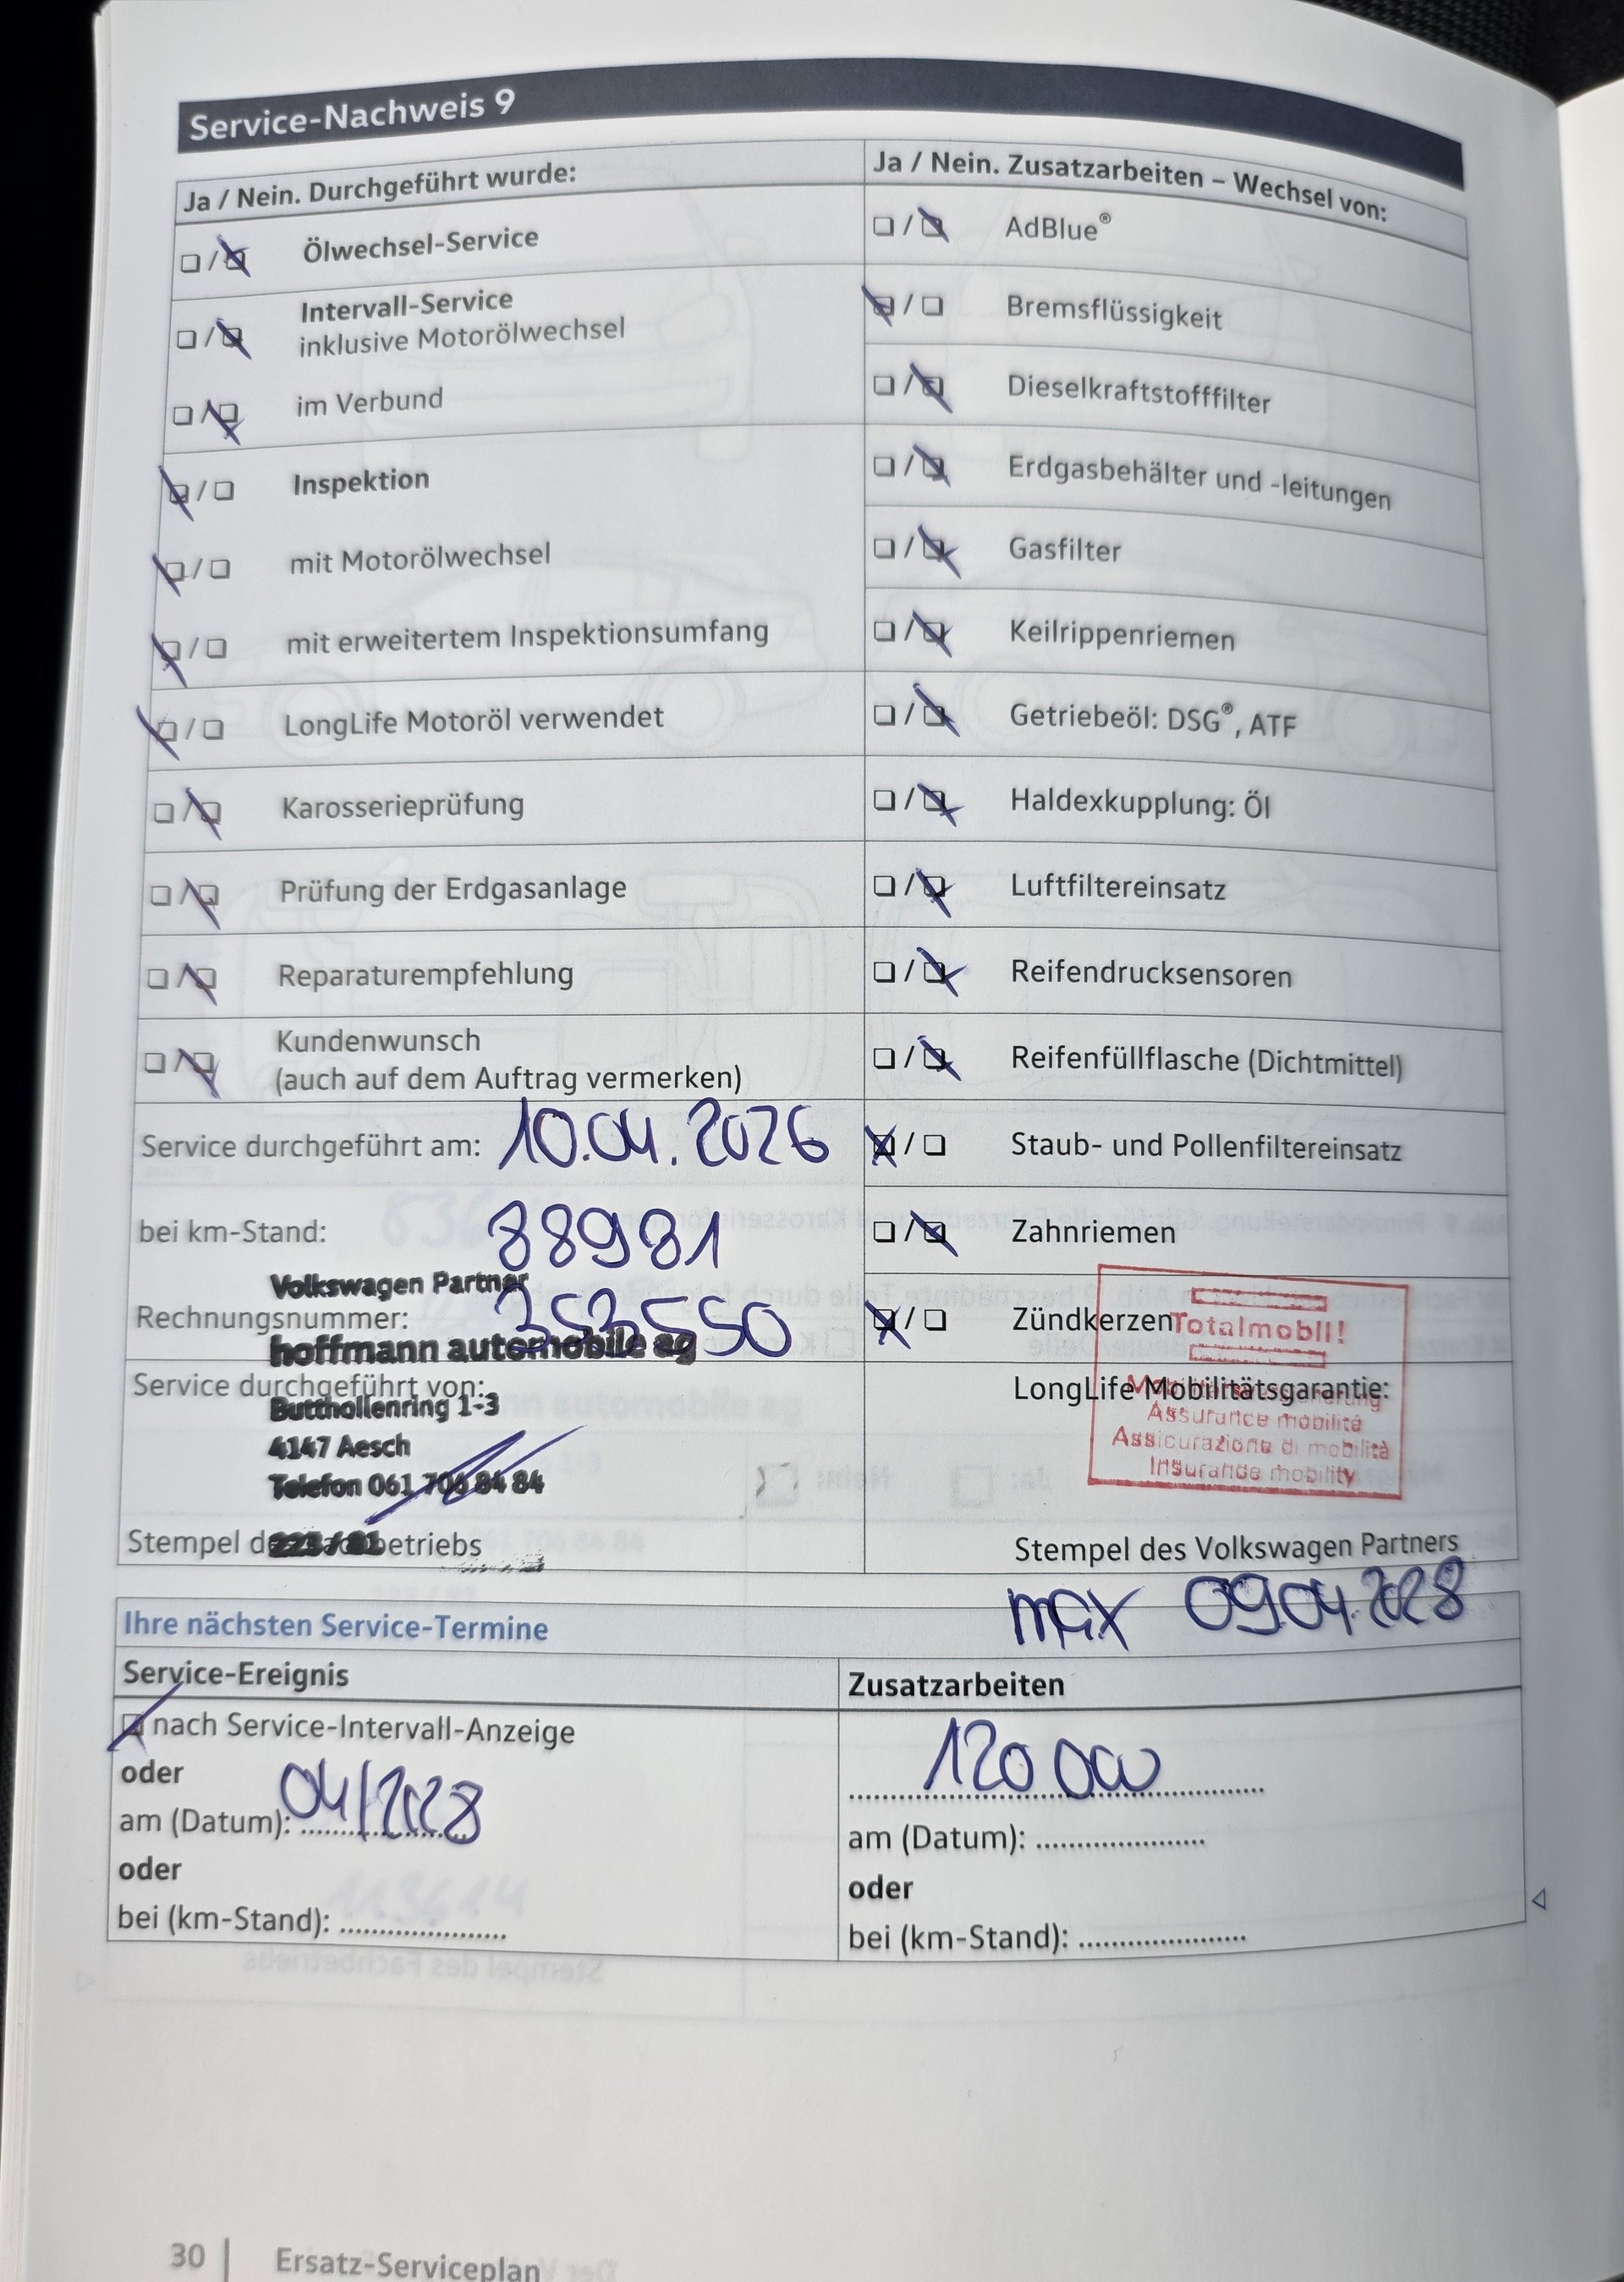 Service-Nachweis 9
Ja / Nein. Durchgeführt wurde:
❏ / ❏ Ölwechsel-Service
❏ / ❏ Intervall-Service
inklusive Motorölwechsel
❏ / ❏ im Verbund
❏ / ❏ Inspektion
❏ / ❏ mit Motorölwechsel
❏ / ❏ mit erweitertem Inspektionsumfang
❏ / ❏ LongLife Motoröl verwendet
❏ / ❏ Karosserieprüfung
❏ / ❏ Prüfung der Erdgasanlage
❏ / ❏ Reparaturempfehlung
❏ / ❏ Kundenwunsch
(auch auf dem Auftrag vermerken)
Service durchgeführt am: 10.04.2026
bei km-Stand: 88981
Volkswagen Partner
Rechnungsnummer: 353550
hoffmann automobile ag
Service durchgeführt von:
Butthollenring 1-3
4147 Aesch
Telefon 061 706 84 84
Stempel des Fachbetriebs
Ja / Nein. Zusatzarbeiten – Wechsel von:
❏ / ❏ AdBlue®
❏ / ❏ Bremsflüssigkeit
❏ / ❏ Dieselkraftstofffilter
❏ / ❏ Erdgasbehälter und -leitungen
❏ / ❏ Gasfilter
❏ / ❏ Keilrippenriemen
❏ / ❏ Getriebeöl: DSG®, ATF
❏ / ❏ Haldexkupplung: Öl
❏ / ❏ Luftfiltereinsatz
❏ / ❏ Reifendrucksensoren
❏ / ❏ Reifenfüllflasche (Dichtmittel)
❏ / ❏ Staub- und Pollenfiltereinsatz
❏ / ❏ Zahnriemen
❏ / ❏ Zündkerzen
Totalmobil!
LongLife Mobilitätsgarantie:
Assurance mobilité
Assicurazione di mobilità
Insurance mobility
Stempel des Volkswagen Partners
max 09.04.2028
Ihre nächsten Service-Termine
Service-Ereignis
❏ nach Service-Intervall-Anzeige
oder
am (Datum): 04/2028
oder
bei (km-Stand): ....................
Zusatzarbeiten
120 000
am (Datum): ....................
oder
bei (km-Stand): ....................
30 | Ersatz-Serviceplan